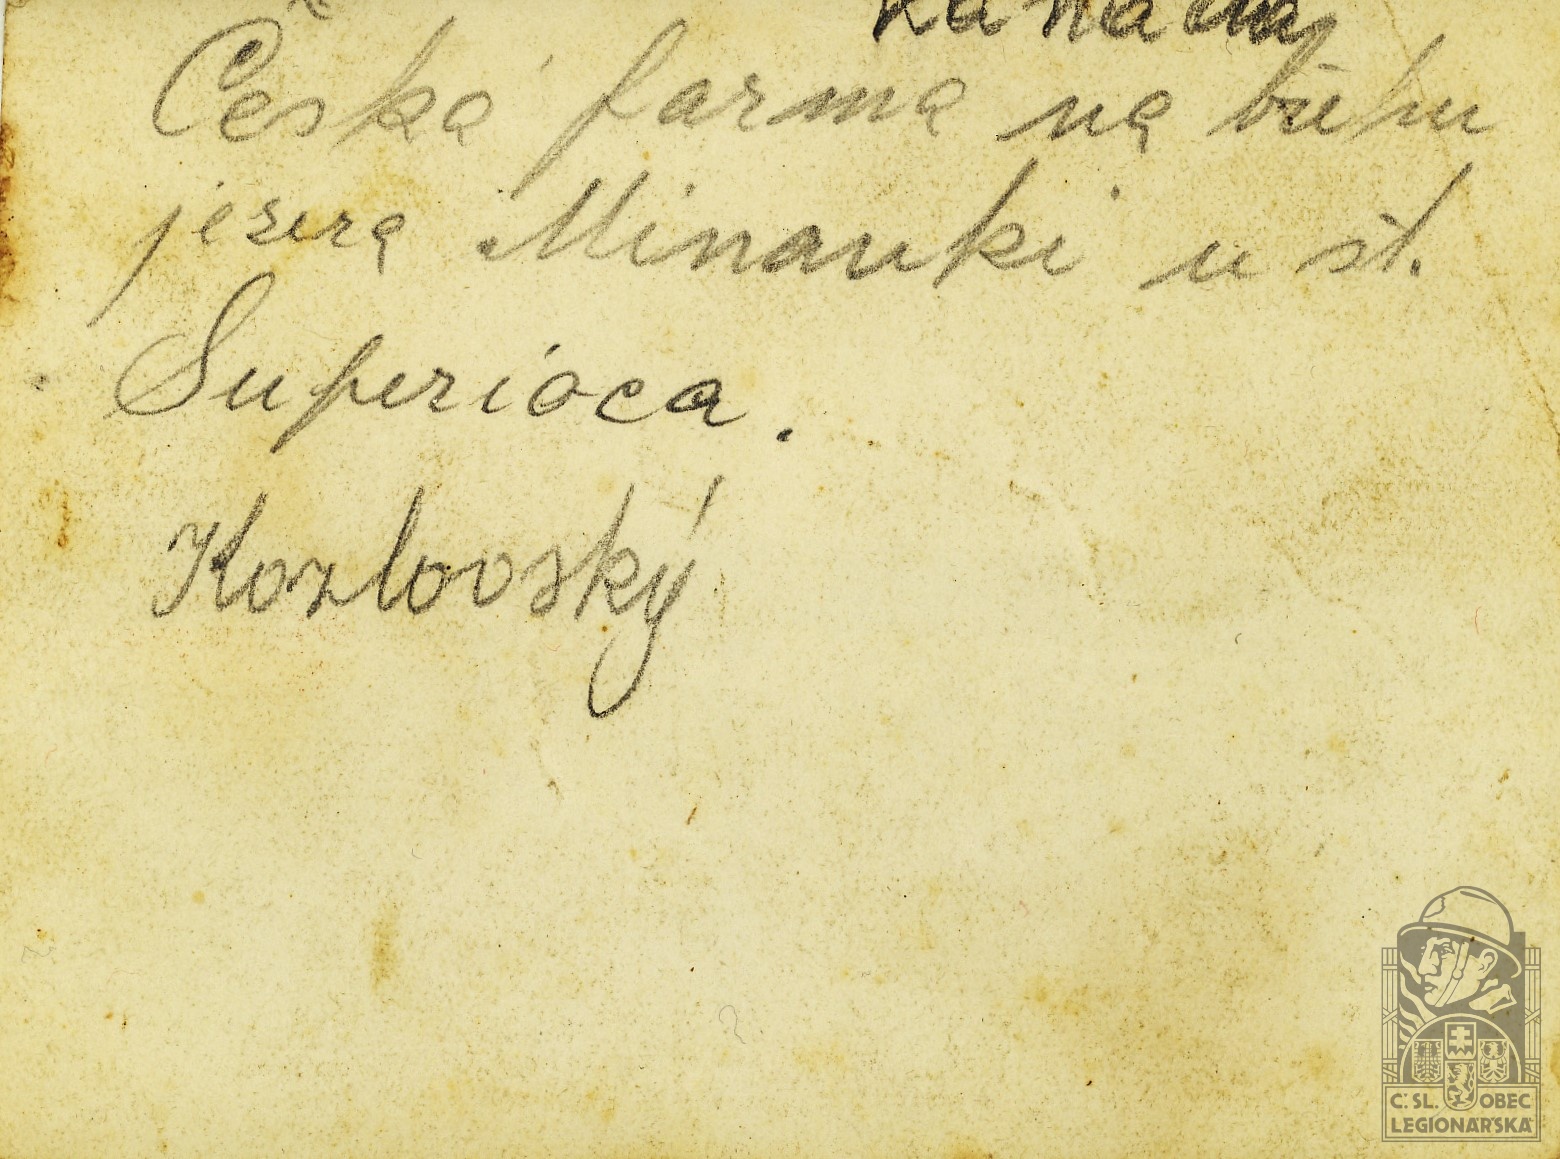 Kanada
Česká farma na břehu
jezera Minanki u st.
Superioca.
Kozlovský
Č. SL. OBEC
LEGIONÁŘSKÁ